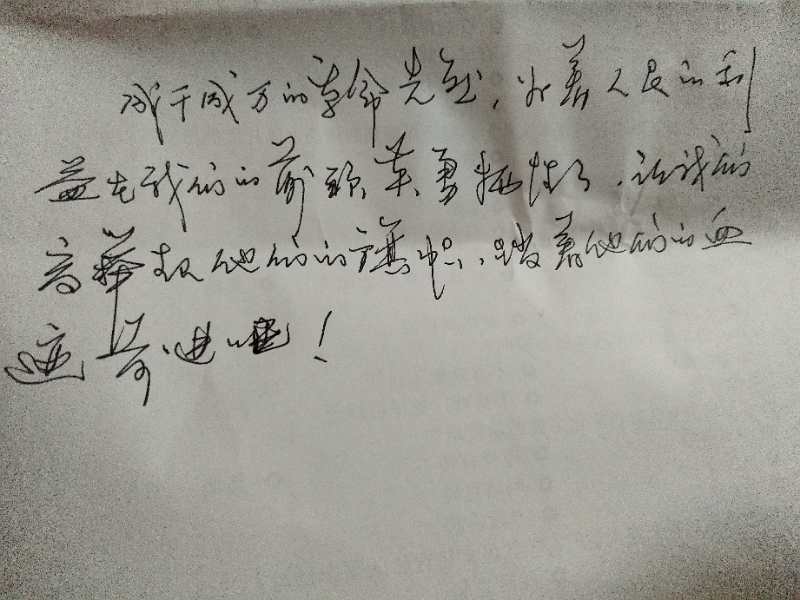 成千成万的革命先烈，为着人民的利
益在我们的前头英勇牺牲了，让我们
高举起他们的旗帜，踏着他们的血
迹前进吧！